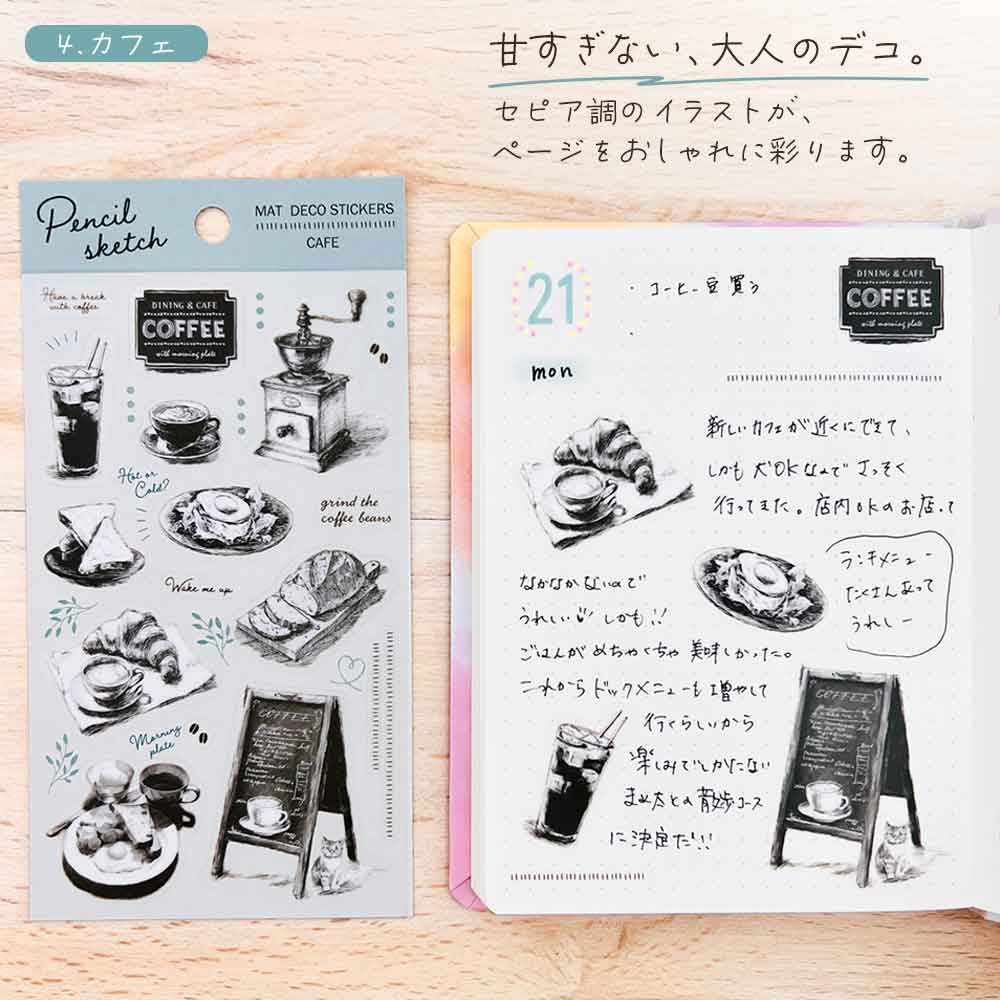 4.カフェ
甘すぎない、大人のデコ。
セピア調のイラストが、
ページをおしゃれに彩ります。
Pencil
sketch
MAT DECO STICKERS
CAFE
Have a break
with coffee
DINING & CAFE
COFFEE
with morning plate
Hot or
Cold?
grind the
coffee beans
Wake me up
Morning
plate
COFFEE
21
・コーヒー豆買う
・
mon
DINING & CAFE
COFFEE
with morning plate
新しいカフェが近くにできて、
しかも犬OKなのでさっそく
行ってきた。店内OKのお店って
なかなかないので
うれしい しかも!!
ごはんがめちゃくちゃ美味しかった。
これからドックメニューも増やして
行くらしいから
楽しみでしかたない
まめ太との散歩コース
に決定だ!!
ランチメニュー
たくさんあって
うれしー
COFFEE